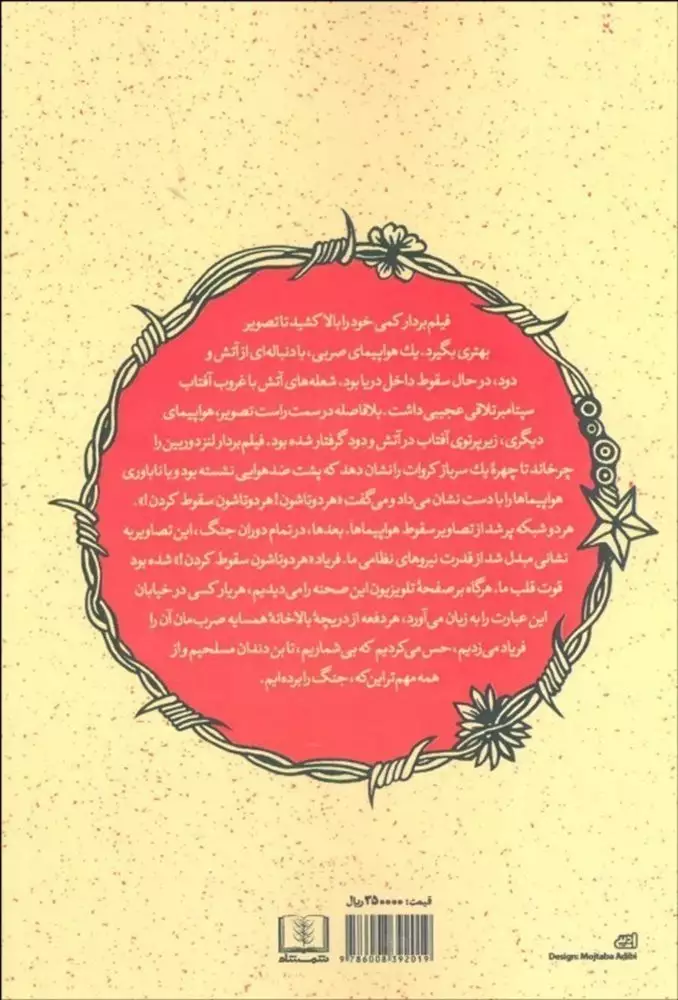 فیلم‌بردار کمی خود را بالا کشید تا تصویر
بهتری بگیرد. یك هواپیمای صربی، با دنباله‌ای از آتش و
دود، در حال سقوط داخل دریا بود. شعله‌های آتش با غروب آفتاب
سپتامبر تلاقی عجیبی داشت. بلافاصله در سمت راست تصویر، هواپیمای
دیگری، زیر پرتوی آفتاب در آتش و دود گرفتار شده بود. فیلم‌بردار لنز دوربین را
چرخاند تا چهرهٔ یك سرباز کروات را نشان دهد که پشت ضدهوایی نشسته بود و با ناباوری
هواپیماها را با دست نشان می‌داد و می‌گفت «هر دو تاشون! هر دو تاشون سقوط کردن!».
هر دو شبکه پر شد از تصاویر سقوط هواپیماها. بعدها، در تمام دوران جنگ، این تصاویر به
نشانی مبدل شد از قدرت نیروهای نظامی ما. فریاد «هر دو تاشون سقوط کردن!» شده بود
قوت قلب ما. هرگاه بر صفحهٔ تلویزیون این صحنه را می‌دیدیم، هر بار کسی در خیابان
این عبارت را به زبان می‌آورد، هر دفعه از دریچهٔ بالاخانهٔ همسایه صرب‌مان آن را
فریاد می‌زدیم، حس می‌کردیم که بی‌شماریم، تا بن دندان مسلحیم و از
همه مهم‌تر این‌که، جنگ را برده‌ایم.
قیمت: ۳۵۰۰۰۰ ریال
شمشاد
9 786008 392019
Design: Mojtaba Adibi